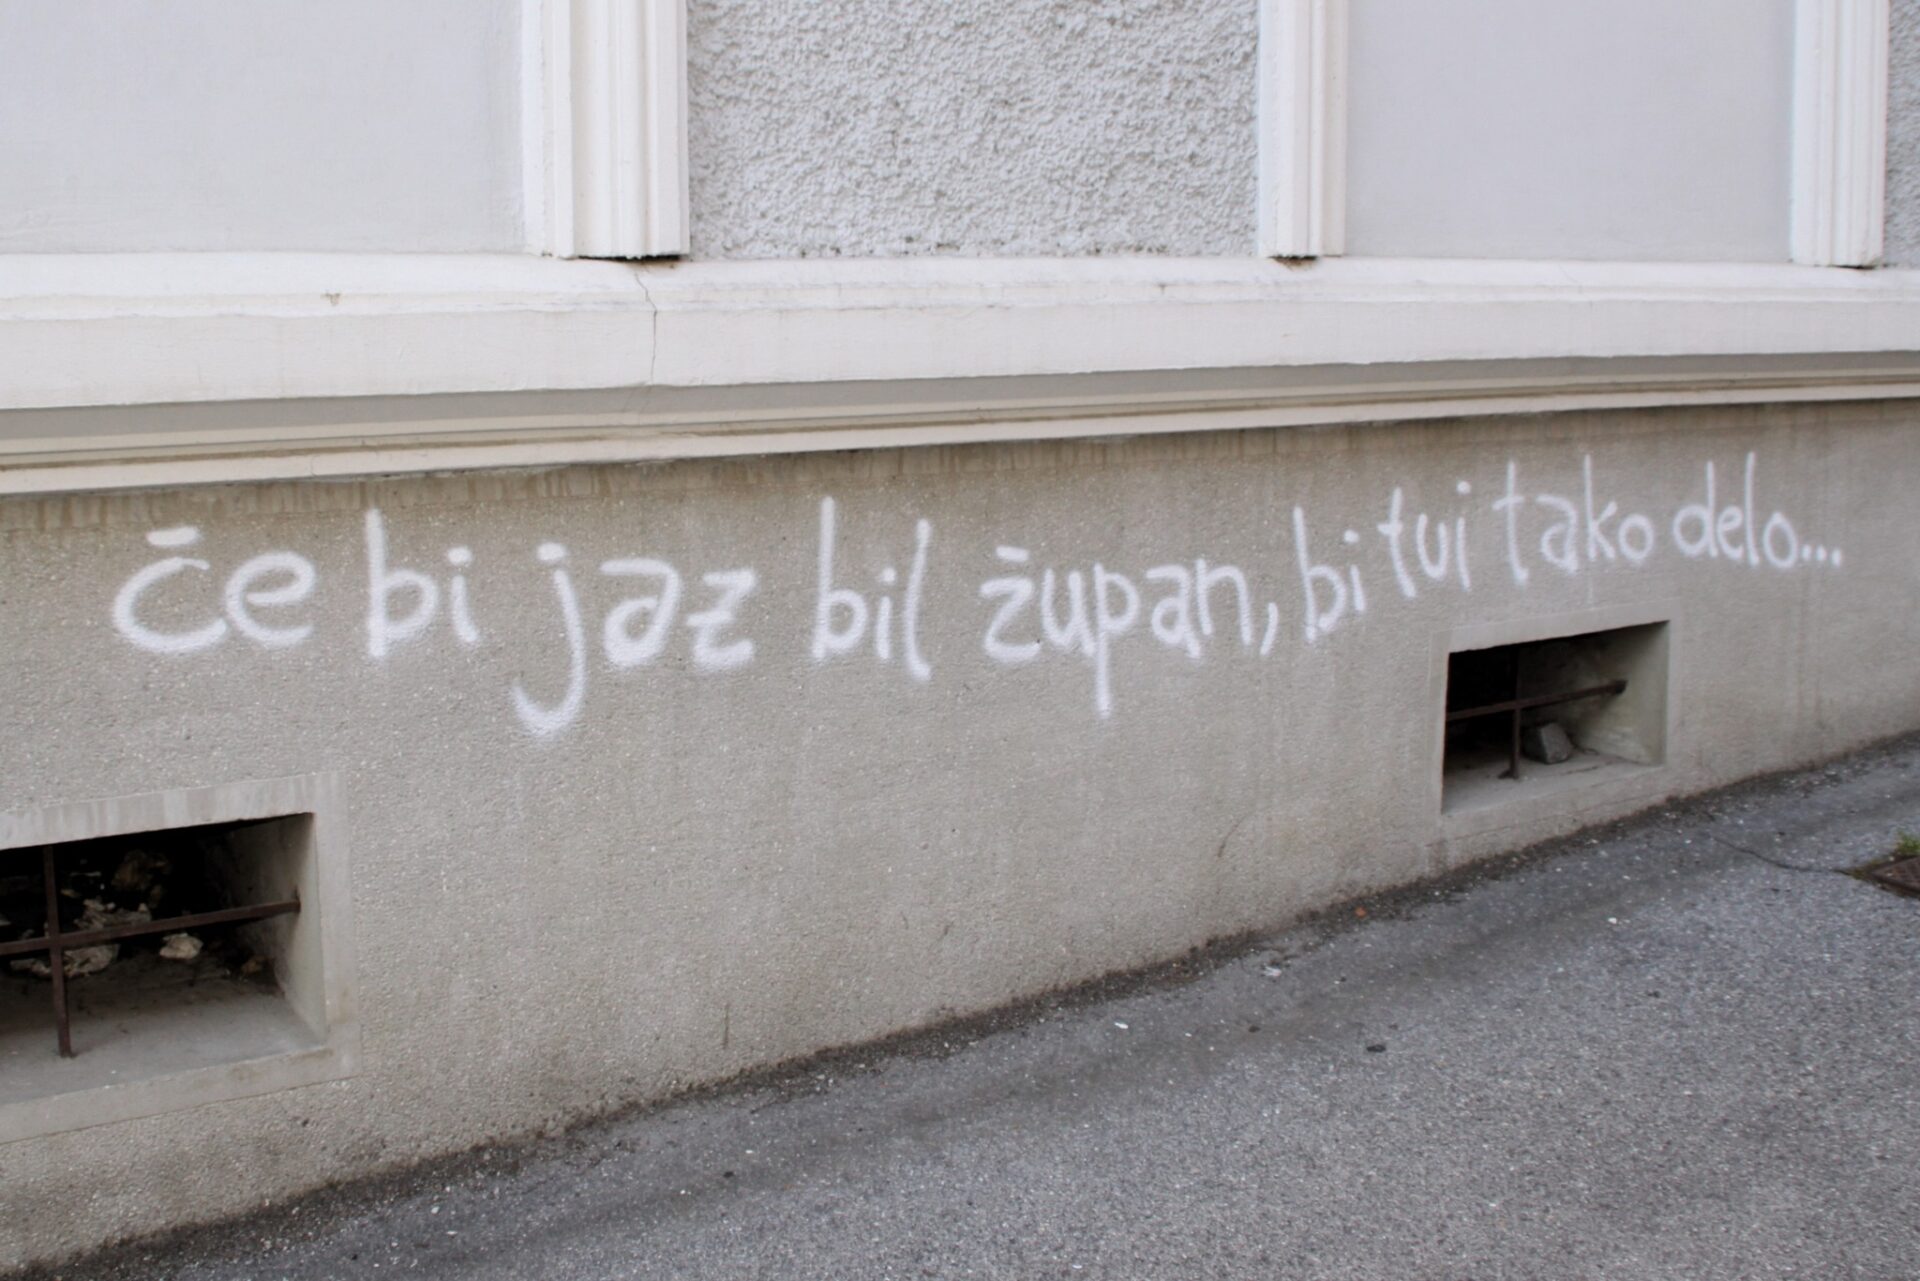 če bi jaz bil župan, bi tui tako delo...